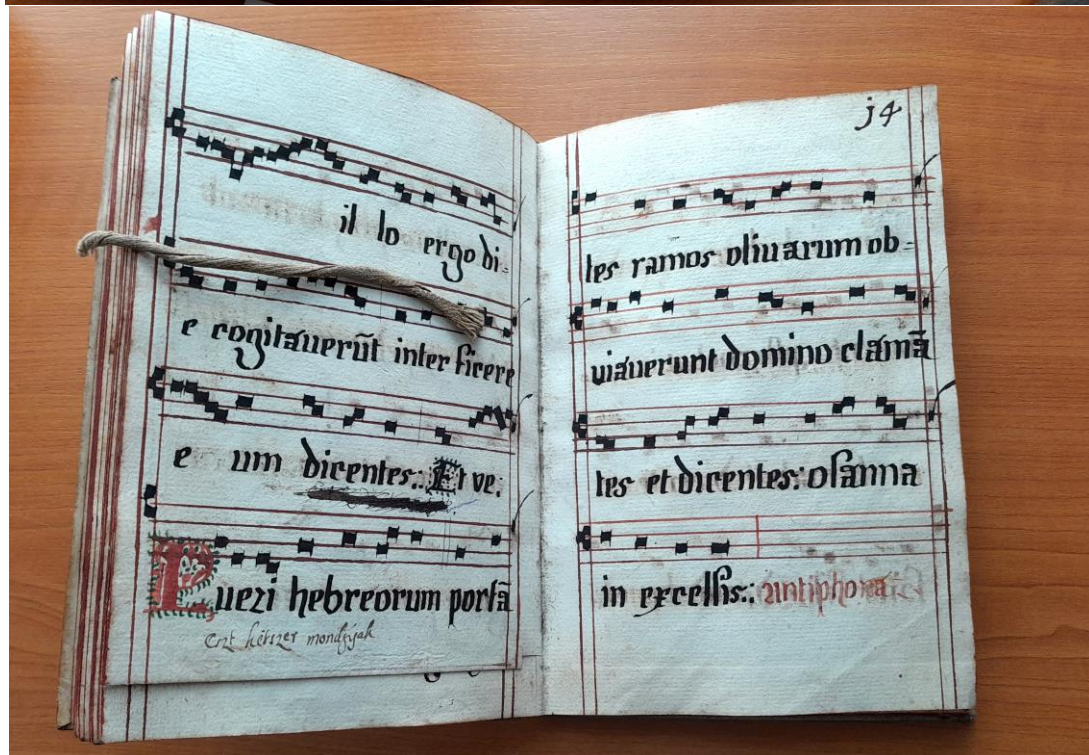 il lo ergo di-
e cogitauerūt inter ficere
e um dicentes:. Et ve:
Pueri hebreorum portā
Ezt kétszer mondgyak
j4
tes ramos oliuarum ob-
uiauerunt domino clamā
tes et dicentes: Osanna
in excelsis:. antiphona